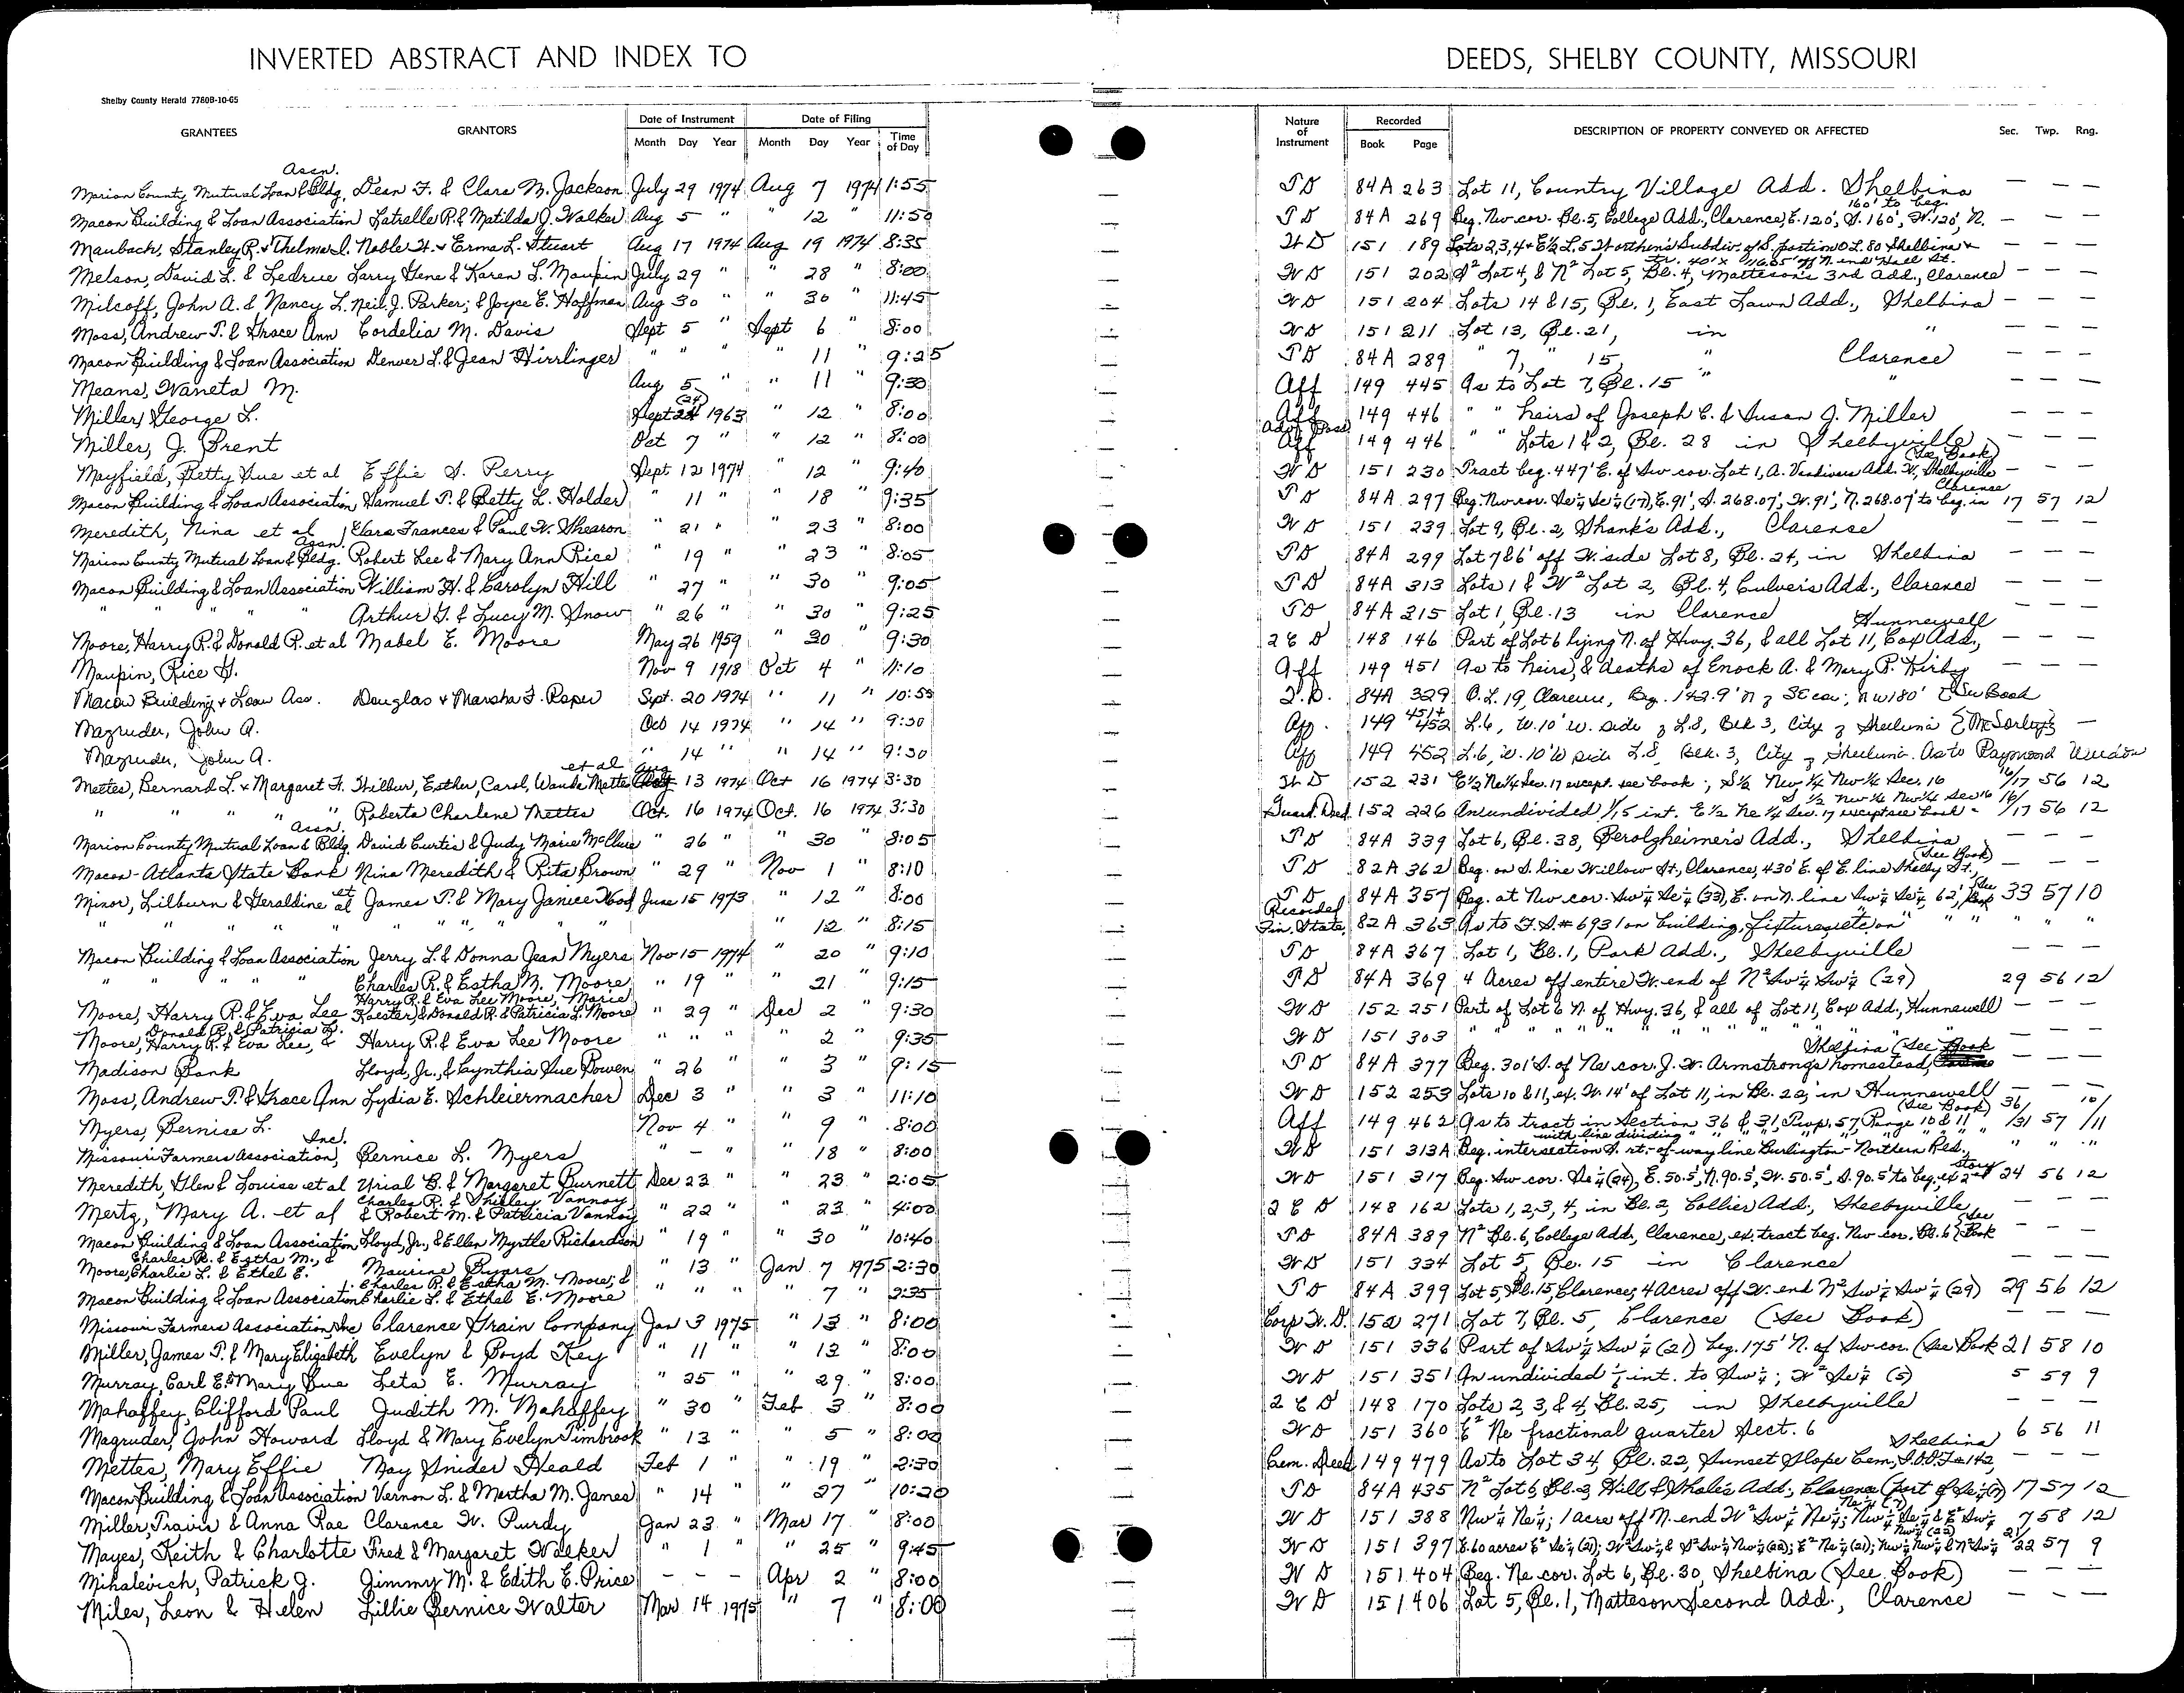 INVERTED ABSTRACT AND INDEX TO
DEEDS, SHELBY COUNTY, MISSOURI
Shelby County Herald 7780B-10-65
GRANTEES GRANTORS Date of Instrument Month Day Year Date of Filing Month Day Year Time of Day Nature of Instrument Recorded Book Page DESCRIPTION OF PROPERTY CONVEYED OR AFFECTED Sec. Twp. Rng.
Marion County Mutual Loan & Bldg. Assn. Dean F. & Clara M. Jackson July 29 1974 Aug 7 1974 1:55 TD 84A 263 Lot 11, Country Village Add. Shelbina — — —
Macon Building & Loan Association Latrelle R. & Matilda J. Walker Aug 5 " " 12 " 11:50 TD 84A 269 Beg. Nw cor. Bl. 5, College Add., Clarence, E. 120', S. 160', W. 120', N. 160' to beg. — — —
Maubach, Stanley R. & Thelma I. Noble H. & Erma L. Stuart Aug 17 1974 Aug 19 1974 8:35 WD 151 189 Lots 2,3,4 & E½ L.5 Worthen's Subdiv. of S. portion O L. 80 Shelbina & tr. 40' x 116.05' off N. end Hall St. — — —
Melson, David L. & Ledrue Larry Gene & Karen L. Maupin July 29 " " 28 " 8:00 WD 151 202 S² Lot 4, & N² Lot 5, Bl. 4, Matteson's 3rd Add., Clarence — — —
Milcoff, John A. & Nancy L. Neil J. Parker; & Joyce E. Hoffman Aug 30 " " 30 " 11:45 WD 151 204 Lots 14 & 15, Bl. 1, East Lawn Add., Shelbina — — —
Moss, Andrew T. & Grace Ann Cordelia M. Davis Sept 5 " Sept 6 " 8:00 WD 151 211 Lot 13, Bl. 21, in " — — —
Macon Building & Loan Association Denver L. & Jean Hirrlinger " " " " 11 " 9:25 TD 84A 289 " 7, " 15, " Clarence — — —
Means, Waneta M. Aug 5 " " 11 " 9:30 Aff 149 445 As to Lot 7, Bl. 15 " " — — —
Miller, George L. Sept 24 (24) 1963 " 12 " 8:00 Aff 149 446 " " heirs of Joseph C. & Susan J. Miller — — —
Miller, J. Brent Oct 7 " " 12 " 8:00 Adv. Poss. Aff 149 446 " " Lots 1 & 2, Bl. 28 in Shelbyville — — —
Mayfield, Betty Sue et al Effie S. Perry Sept 12 1974 " 12 " 9:40 WD 151 230 Tract beg. 447' E. of Sw cor. Lot 1, A. Vandivers Add. W. Shelbyville (See Book) — — —
Macon Building & Loan Association Samuel T. & Betty L. Holder " 11 " " 18 " 9:35 TD 84A 297 Beg. Nw cor. Se¼ Se¼ (17), E. 91', S. 268.07', W. 91', N. 268.07' to beg. in Clarence 17 57 12
Meredith, Nina et al Clara Frances & Paul W. Shearon " 21 " " 23 " 8:00 WD 151 239 Lot 9, Bl. 2, Shank's Add., Clarence — — —
Marion County Mutual Loan & Bldg. Assn. Robert Lee & Mary Ann Rice " 19 " " 23 " 8:05 TD 84A 299 Lot 7 & 6' off W. side Lot 8, Bl. 24, in Shelbina — — —
Macon Building & Loan Association William H. & Carolyn Hill " 27 " " 30 " 9:05 TD 84A 313 Lots 1 & W² Lot 2, Bl. 4, Culver's Add., Clarence — — —
" " " " Arthur G. & Lucy M. Snow " 26 " " 30 " 9:25 TD 84A 315 Lot 1, Bl. 13 in Clarence — — —
Moore, Harry R. & Donald R. et al Mabel E. Moore May 26 1959 " 30 " 9:30 2 C D 148 146 Part of Lot 6 lying N. of Hwy. 36, & all Lot 11, Cox Add., Hunnewell — — —
Maupin, Rice G. Nov 9 1918 Oct 4 " 11:10 Aff 149 451 As to heirs, & deaths of Enock A. & Mary P. Kirby — — —
Macon Building & Loan Ass. Douglas & Marsha J. Raper Sept. 20 1974 " 11 " 10:55 T.D. 84A 329 O.L. 19, Clarence, Beg. 142.9' N of SE cor; NW 180' (See Book
Magruder, John A. Oct 14 1974 " 14 " 9:30 Aff. 149 451+452 L.6, W. 10' W. side of L8, Blk 3, City of Shelbina —
Magruder, John A. " 14 " " 14 " 9:30 Aff 149 452 L.6, W. 10' W side L.8, Blk. 3, City of Shelbina. As to Raymond
Mettes, Bernard L. & Margaret F. Wilbur, Esther, Carol, Wanda Mettes et al Aug 13 1974 Oct 16 1974 3:30 WD 152 231 E½ Ne¼ Sec. 17 except. see book; S½ Nw ¼ Nw ¼ Sec. 16 16/17 56 12
" " " " Roberta Charlene Mettes Oct. 16 1974 Oct. 16 1974 3:30 Guard. Deed. 152 226 An undivided 1/15 int. E½ Ne ¼ Sec. 17 except see book - S ½ Nw ¼ Nw ¼ Sec 16 16/17 56 12
Marion County Mutual Loan & Bldg. Assn. David Curtis & Judy Marie McClure " 26 " " 30 " 8:05 TD 84A 339 Lot 6, Bl. 38, Berolzheimer's Add., Shelbina — — —
Macon-Atlanta State Bank Nina Meredith & Rita Brown " 29 " Nov 1 " 8:10 TD 82A 362 Beg. on S. line Willow St., Clarence, 430' E. of E. line Shelby St., (See Book) — — —
Minor, Lilburn & Geraldine et al James T. & Mary Janice Wood June 15 1973 " 12 " 8:00 TD 84A 357 Beg. at Nw cor. Sw¼ Se¼ (33), E. on N. line Sw¼ Se¼, 62', See Book 33 57 10
" " " " " " " " " " 12 " 8:15 Recorded Fin. State. 82A 363 As to F.S. # 6931 on building, fixtures, etc on " " " " " "
Macon Building & Loan Association Jerry L. & Donna Jean Myers Nov 15 1974 " 20 " 9:10 TD 84A 367 Lot 1, Bl. 1, Park Add., Shelbyville — — —
" " " " Charles R. & Estha M. Moore " 19 " " 21 " 9:15 TD 84A 369 4 Acres off entire W. end of N² Sw¼ Sw¼ (29) 29 56 12
Moore, Harry R. & Eva Lee Harry R. & Eva Lee Moore, Marie Koester, & Donald R. & Patricia L. Moore " 29 " Dec 2 " 9:30 WD 152 251 Part of Lot 6 N. of Hwy. 36, & all of Lot 11, Cox Add., Hunnewell — — —
Moore, Harry R. & Eva Lee, & Donald R. & Patricia L. Harry R. & Eva Lee Moore " " " " 2 " 9:35 WD 151 303 " " " " " " " " " " " " " " — — —
Madison Bank Lloyd, Jr., & Cynthia Sue Bowen " 26 " " 3 " 9:15 TD 84A 377 Beg. 301' S. of Ne cor. J. W. Armstrong's homestead, Shelbina (See Book — — —
Moss, Andrew T. & Grace Ann Lydia E. Schleiermacher Dec 3 " " 3 " 11:10 WD 152 253 Lots 10 & 11, ex. W. 14' of Lot 11, in Bl. 22, in Hunnewell — — —
Myers, Bernice L. Nov 4 " " 9 " 8:00 Aff 149 462 As to tract in Section 36 & 31, Twp. 57, Range 10 & 11 (See Book) 36/31 57 10/11
Missouri Farmers Association, Inc. Bernice L. Myers " — " " 18 " 8:00 WD 151 313A Beg. intersection S. rt.-of-way line Burlington-Northern Rd., with line dividing " " " " " " " "
Meredith, Glen & Louise et al Urial B. & Margaret Burnett Dec 23 " " 23 " 2:05 WD 151 317 Beg. Sw cor. Se¼ (24), E. 50.5', N. 90.5', W. 50.5', S. 90.5' to beg., ex 2nd story 24 56 12
Mertz, Mary A. et al Charles R. & Shirley Vannoy & Robert M. & Patricia Vannoy " 22 " " 23 " 4:00 2 C D 148 162 Lots 1, 2, 3, 4, in Bl. 2, Collier Add., Shelbyville — — —
Macon Building & Loan Association Lloyd, Jr., & Ellen Myrtle Richardson " 19 " " 30 " 10:40 TD 84A 389 N² Bl. 6, College Add., Clarence, ex. tract beg. Nw cor. Bl. 6 (See Book — — —
Moore, Charlie L. & Ethel E. Charles R. & Estha M., & Maurine Byars " 13 " Jan 7 1975 2:30 WD 151 334 Lot 5, Bl. 15 in Clarence — — —
Macon Building & Loan Association Charles R. & Estha M. Moore; & Charlie L. & Ethel E. Moore " " " " 7 " 2:35 TD 84A 399 Lot 5, Bl. 15, Clarence; 4 Acres off W. end N² Sw¼ Sw¼ (29) 29 56 12
Missouri Farmers Association, Inc Clarence Grain Company Jan 3 1975 " 13 " 8:00 Corp W.D. 152 271 Lot 7, Bl. 5, Clarence (See Book) — — —
Miller, James T. & Mary Elizabeth Evelyn & Boyd Key " 11 " " 13 " 8:00 WD 151 336 Part of Sw¼ Sw¼ (21) beg. 175' N. of Sw cor. (See Book 21 58 10
Murray, Carl E. & Mary Sue Leta E. Murray " 25 " " 29 " 8:00 WD 151 351 An undivided int. to Sw¼; W² Se¼ (5) 5 59 9
Mahaffey, Clifford Paul Judith M. Mahaffey " 30 " Feb 3 " 8:00 2 C D 148 170 Lots 2, 3, & 4, Bl. 25, in Shelbyville — — —
Magruder, John Howard Lloyd & Mary Evelyn Timbrook " 13 " " 5 " 8:00 WD 151 360 E² Ne fractional quarter Sect. 6 6 56 11
Mettes, Mary Effie May Snider Heald Feb 1 " " 19 " 2:30 Cem. Deed 149 479 As to Lot 34, Bl. 22, Sunset Slope Cem., I.O.O.F. #142, Shelbina
Macon Building & Loan Association Vernon L. & Martha M. James " 14 " " 27 " 10:20 TD 84A 435 N² Lot 6, Bl. 3, Hill & Shale's Add., Clarence (Part of Se¼ (17) 17 57 12
Miller, Travis & Anna Rae Clarence W. Purdy Jan 23 " Mar 17 " 8:00 WD 151 388 Nw¼ Ne¼; 1 acre off N. end W² Sw¼ Ne¼; Nw¼ Se¼ & E² Sw¼ Ne¼ (7) 7 58 12
Mayes, Keith & Charlotte Fred & Margaret Walker " 1 " " 25 " 9:45 WD 151 397 E. 60 acres E² Se¼ (21); W² Sw¼ & S² Sw¼ Nw¼ (22); E² Ne¼ (21); Nw¼ Nw¼ & N² Sw¼ Nw¼ (22) 21/22 57 9
Mihalevich, Patrick J. Jimmy M. & Edith E. Price — — — Apr 2 " 8:00 WD 151 404 Beg. Ne cor. Lot 6, Bl. 30, Shelbina (See Book) — — —
Miles, Leon & Helen Lillie Bernice Walter Mar 14 1975 " 7 " 8:00 WD 151 406 Lot 5, Bl. 1, Matteson Second Add., Clarence — — —